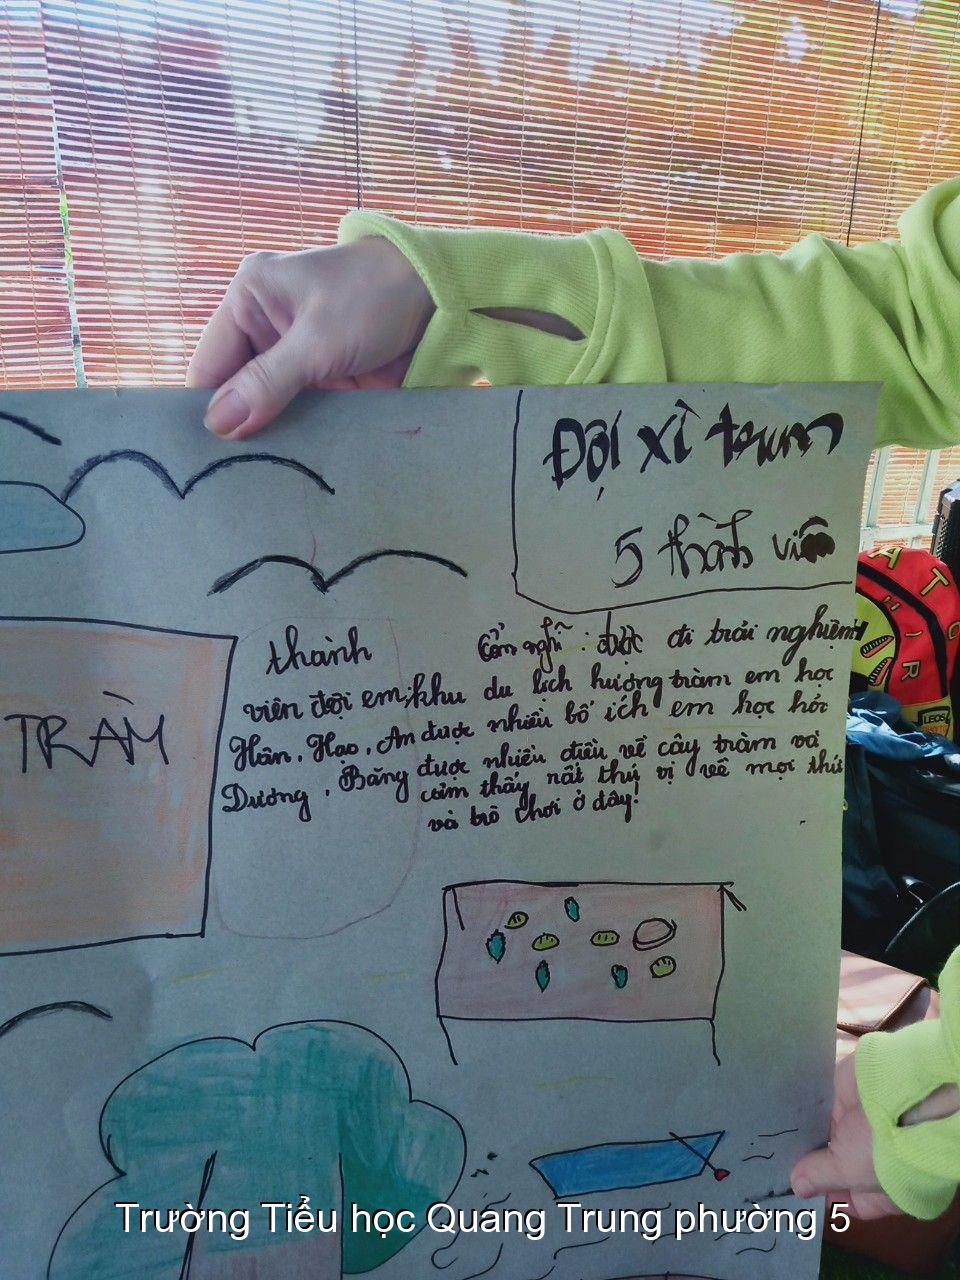 Đội xì trum
5 thành viên
TRÀM
thành
viên đội em:
Hân, Hạo, An
Dương, Băng
Cảm nghĩ: được đi trải nghiệm
khu du lịch hương tràm em học
được nhiều bổ ích em học hỏi
được nhiều điều về cây tràm và
cảm thấy rất thú vị về mọi thứ
và trò chơi ở đây!
Trường Tiểu học Quang Trung phường 5